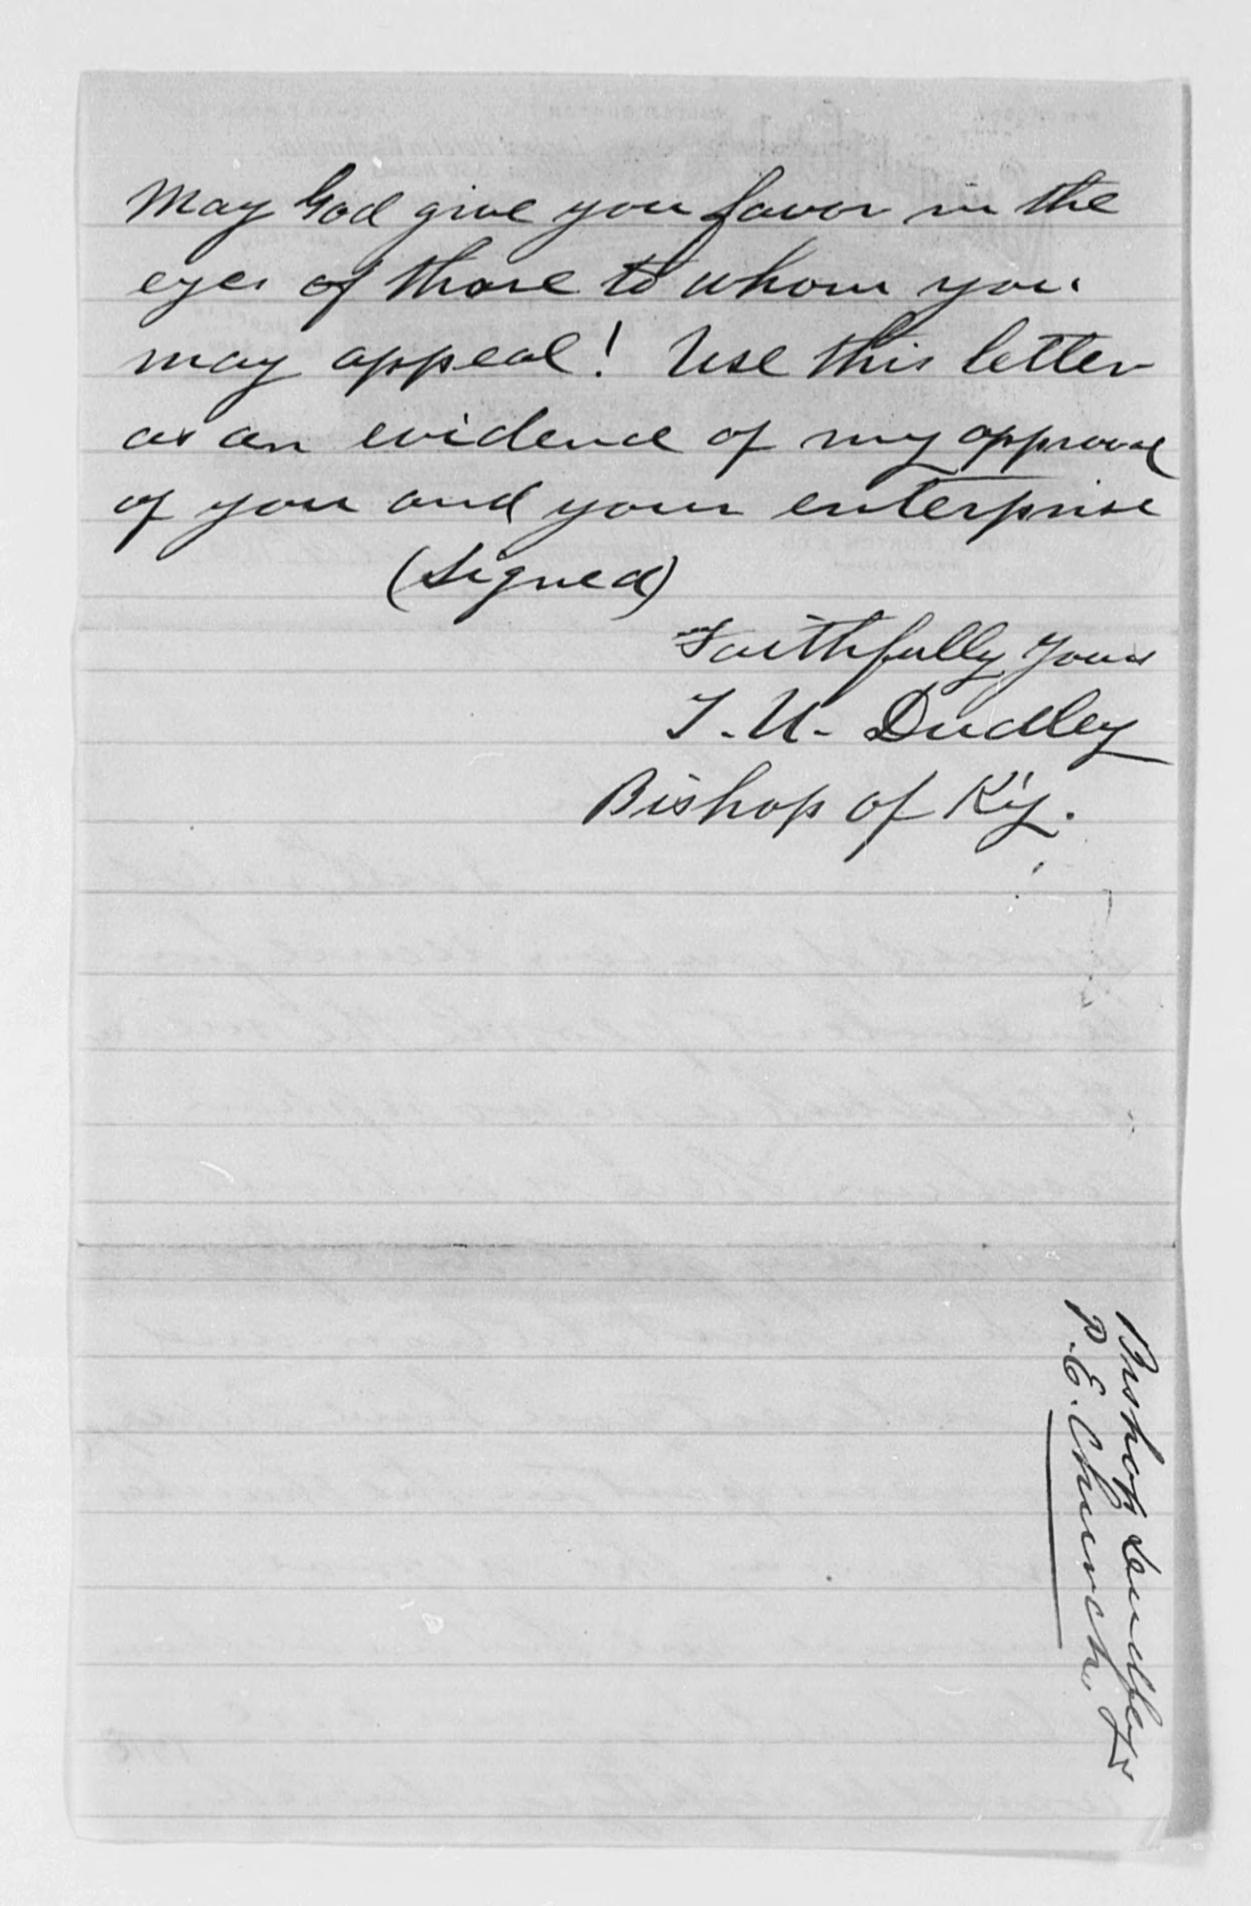 May God give you favor in the
eyes of those to whom you
may appeal! Use this letter
as an evidence of my approval
of you and your enterprise
(Signed)
Faithfully Yours
T. U. Dudley
Bishop of K'y.
Bishop
P.E. Church,